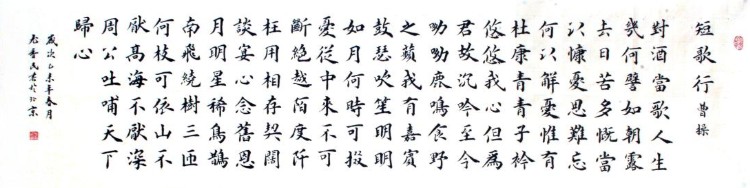 短歌行 曹操
對酒當歌人生
幾何譬如朝露
去日苦多慨當
以慷憂思難忘
何以解憂惟有
杜康青青子衿
悠悠我心但為
君故沉吟至今
呦呦鹿鳴食野
之蘋我有嘉賓
鼓瑟吹笙明明
如月何時可掇
憂從中來不可
斷絕越陌度阡
枉用相存契闊
談宴心念舊恩
月明星稀烏鵲
南飛繞樹三匝
何枝可依山不
厭高海不厭深
周公吐哺天下
歸心
歲次乙未年春月